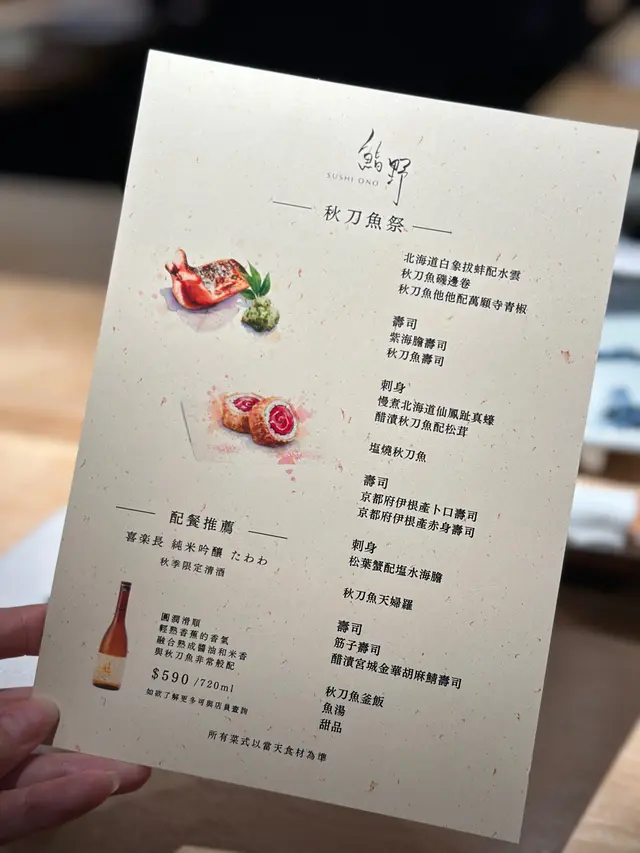 鮨野
SUSHI ONO
秋刀魚祭
北海道白象拔蚌配水雲
秋刀魚磯邊卷
秋刀魚他他配萬願寺青椒
壽司
紫海膽壽司
秋刀魚壽司
刺身
慢煮北海道仙鳳趾真蠔
醋漬秋刀魚配松茸
塩燒秋刀魚
壽司
京都府伊根產卜口壽司
京都府伊根產赤身壽司
刺身
松葉蟹配塩水海膽
秋刀魚天婦羅
壽司
筋子壽司
醋漬宮城金華胡麻鯖壽司
秋刀魚釜飯
魚湯
甜品
配餐推薦
喜楽長 純米吟醸 たわわ
秋季限定清酒
圓潤滑順
輕熟香蕉的香氣
融合熟成醬油和米香
與秋刀魚非常般配
$590 /720ml
如欲了解更多可與店員查詢
所有菜式以當天食材為準